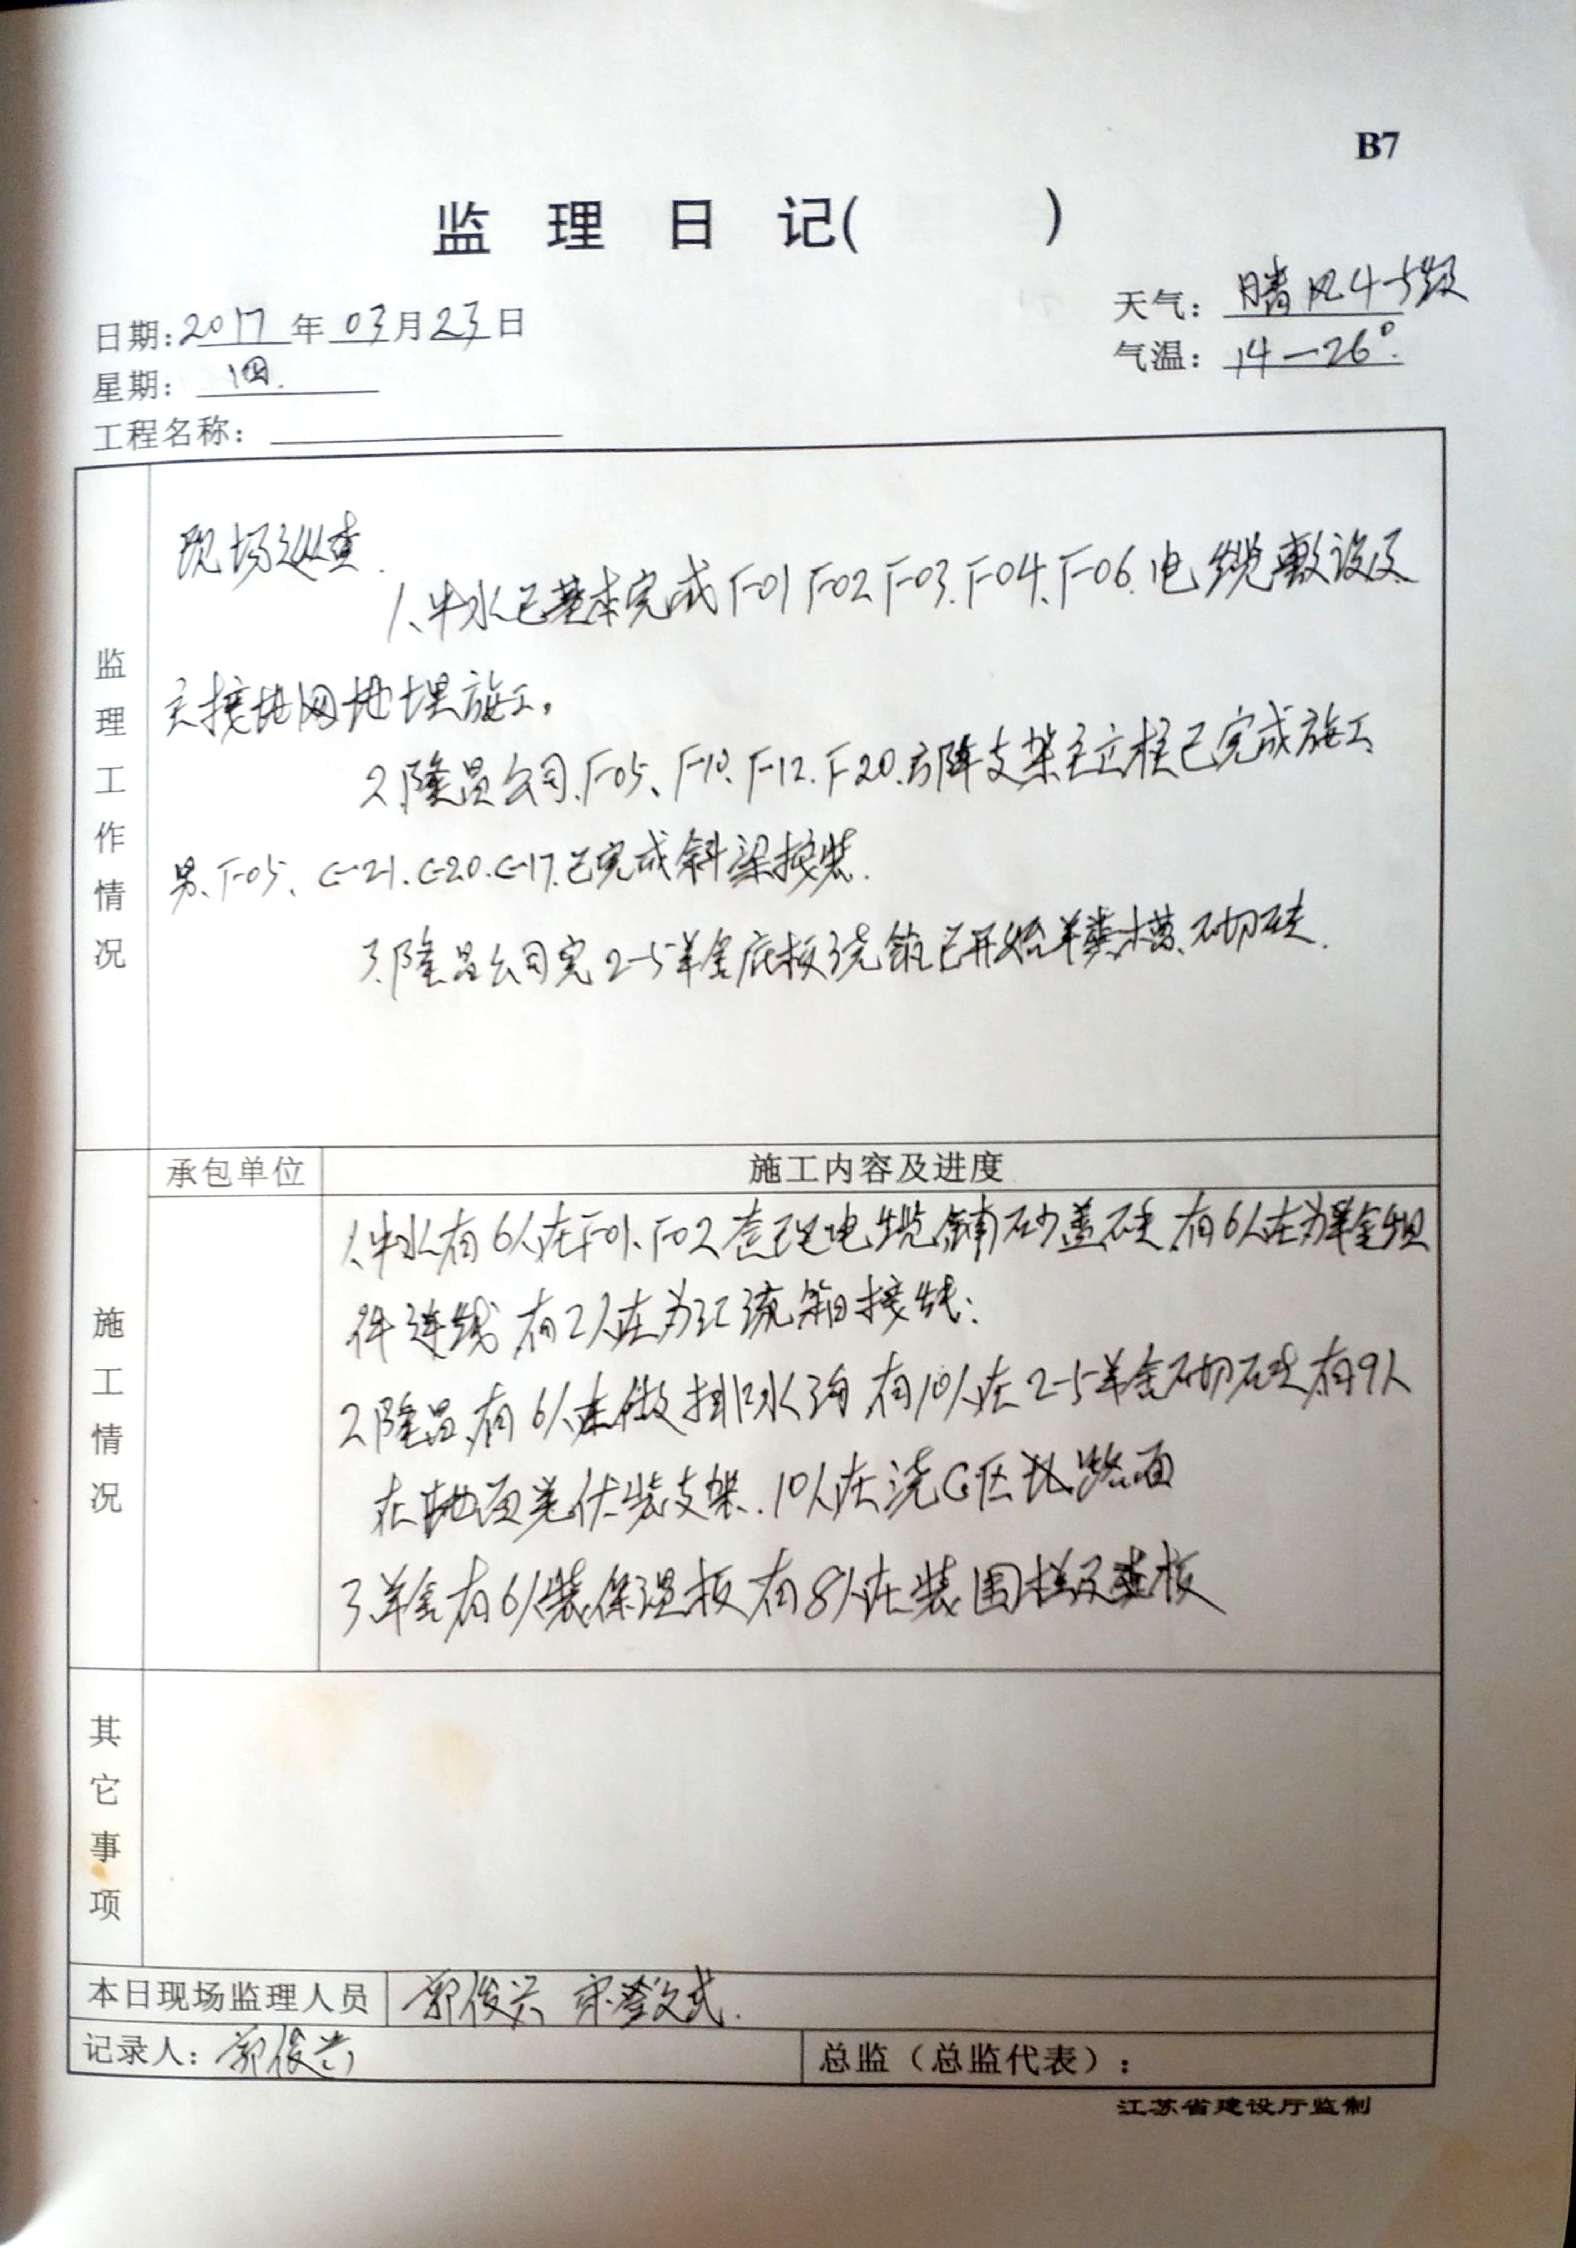 B7
监理日记( )
日期:2017年03月23日
天气:晴风4-5级
星期:四.
气温:14—26°.
工程名称:
监理工作情况
现场巡查.
1、中水已基本完成F-01 F-02 F-03、F-04、F-06.电缆敷设及
主接地网地埋施工。
2、隆昌公司、F-05、F-10、F-12、F-20.方阵支架主立柱已完成施工
另、F-05、C-21、C-20.C-17.已完成斜梁按装.
3、隆昌公司完2-5羊舍底板浇筑已开始羊粪槽、砌砖.
承包单位
施工内容及进度
施工情况
1、中水有6人在F-01、F-02 电缆铺砂盖砖,有6人在为羊舍组
件连线 有2人在为汇流箱接线;
2、隆昌、有6人在做排水沟 有10人在2-5羊舍砌砖 有9人
在地面 装支架.10人在浇G区北路面
3 羊舍有6人装保温板 有8人在装围栏及 板
其它事项
本日现场监理人员 郭俊兴
记录人:郭俊兴
总监(总监代表):
江苏省建设厅监制